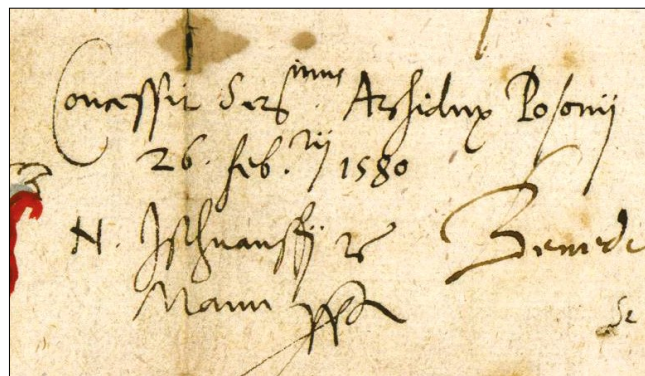 Concessit Ser^imus Archidux Posonij
26. feb.^rij 1580
N. Isthuanffij
Benede
Manu
Se